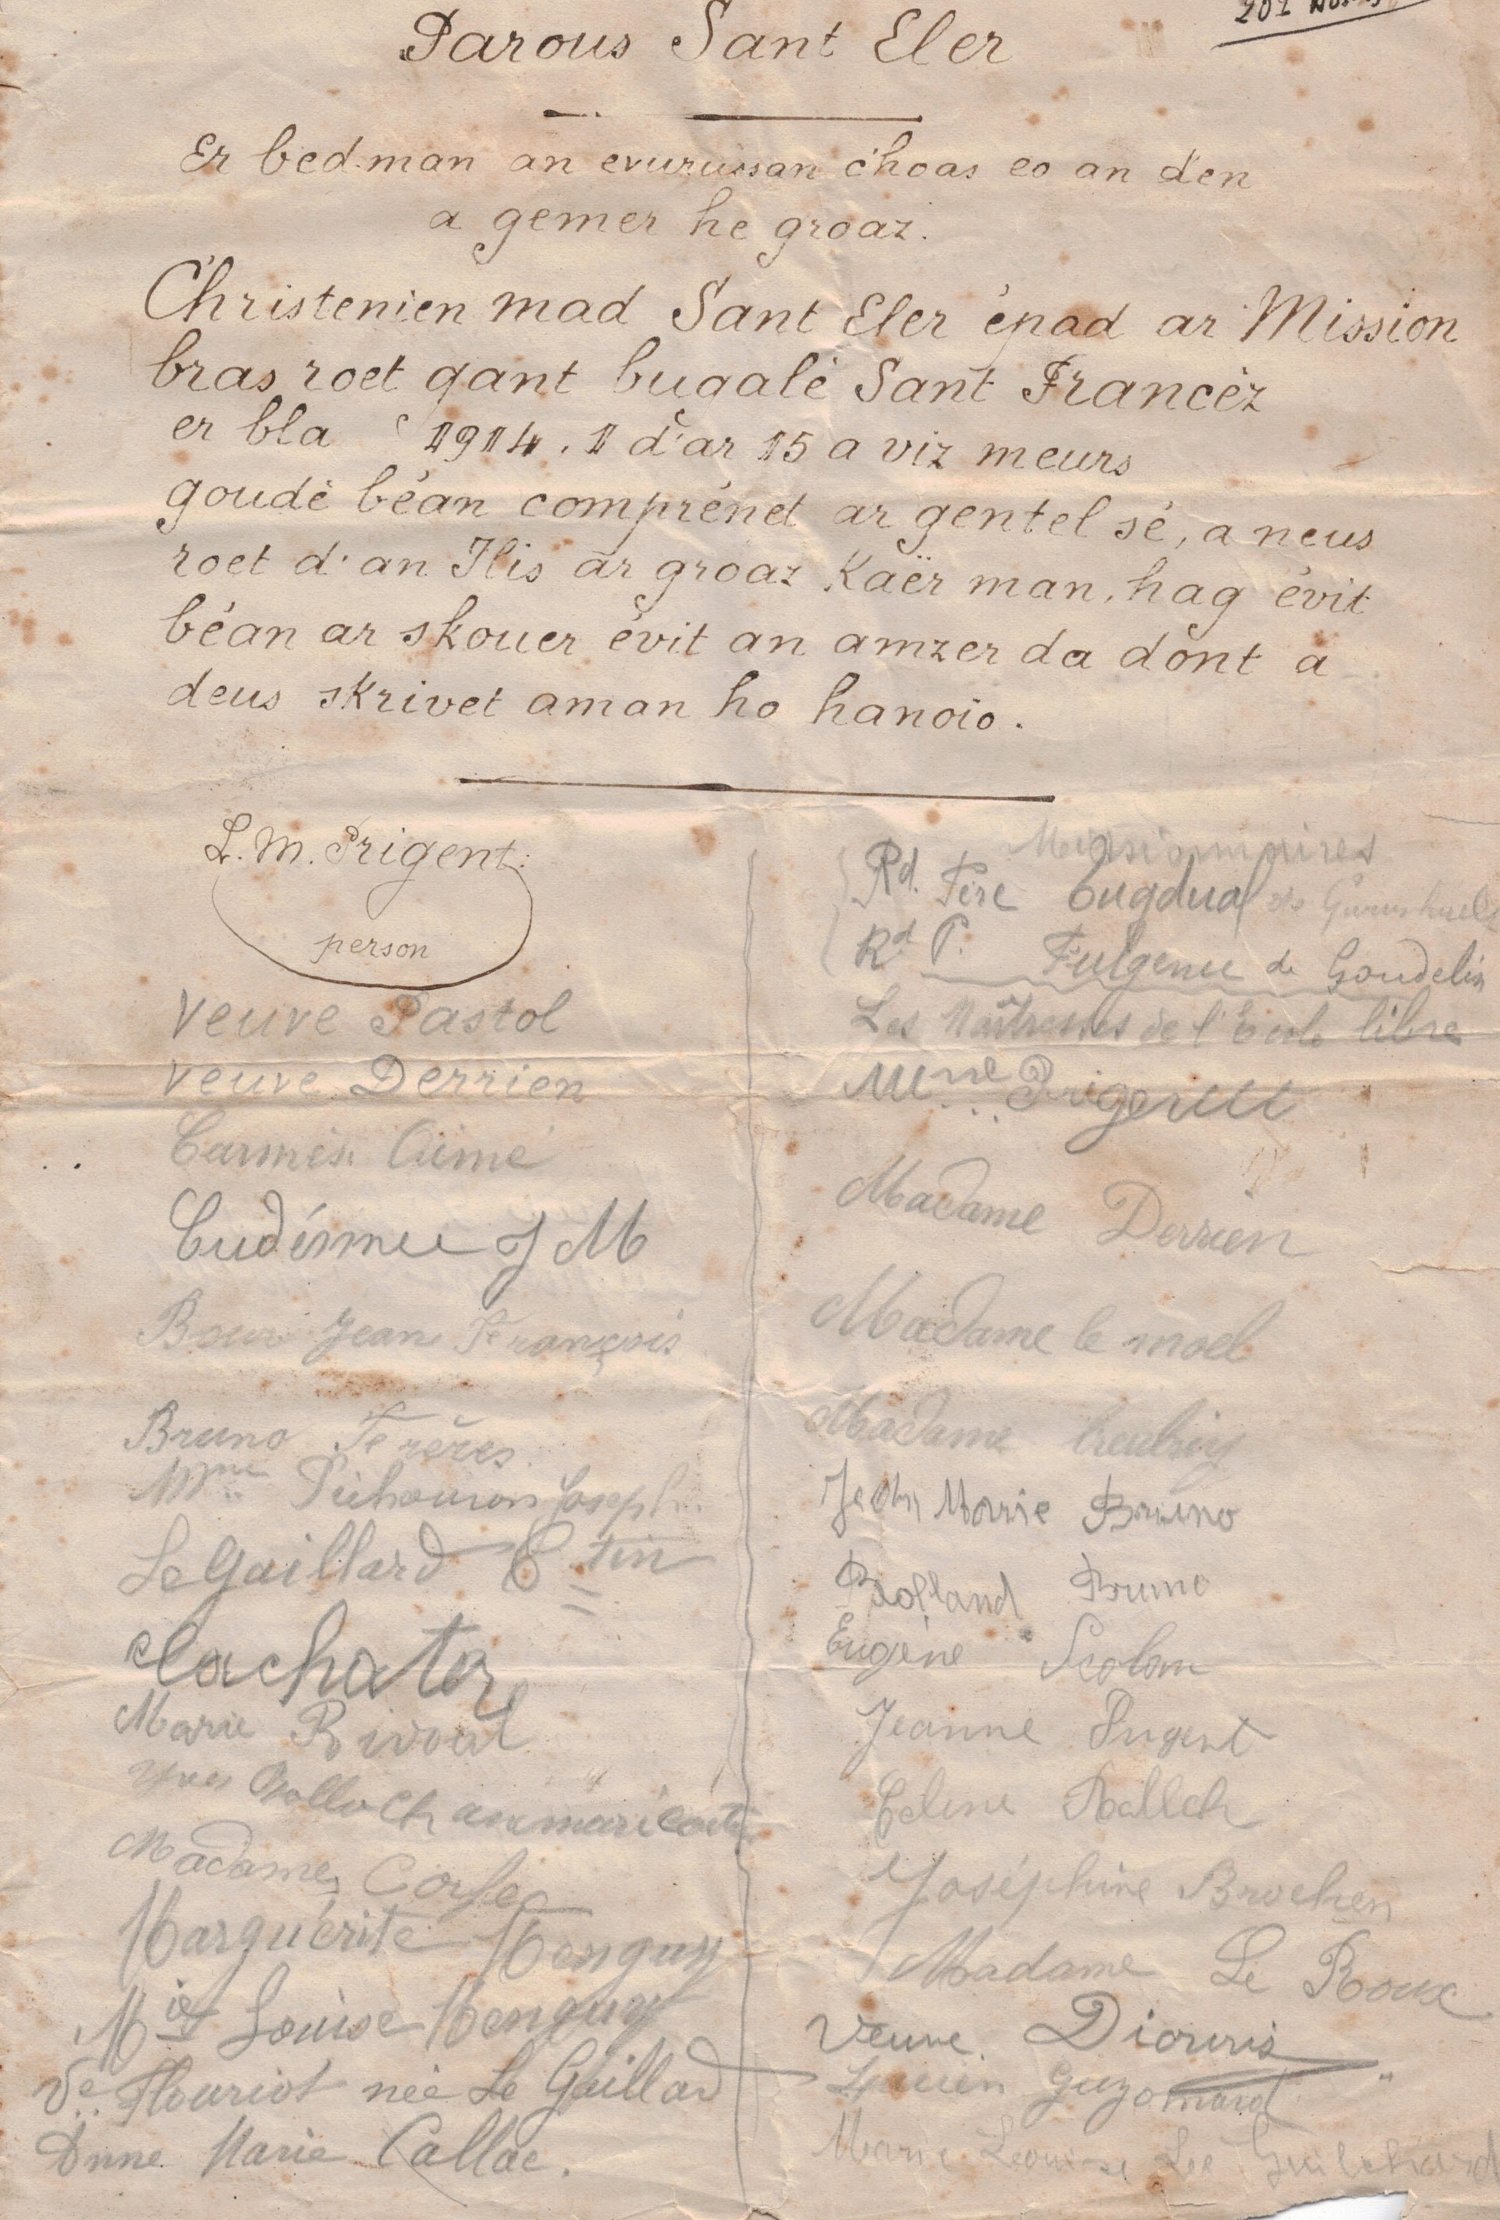 Parous Sant Eler
201
Er bed-man an evurussan c'hoas eo an den
a gemer he groaz.
Christenien mad Sant Eler épad ar Mission
bras roet gant bugalé Sant Francèz
er bla 1914. 1 d'ar 15 a viz meurs
goudé béan comprénet ar gentel sé, a neus
roet d'an Ilis ar groaz Kaër man, hag évit
béan ar skouer évit an amzer da dont a
deus skrivet aman ho hanoio.
L. M. Prigent.
person
Veuve Pastol
Veuve Derrien
Aimé
J M
Jean François
Bruno Frères
Mme Joseph
Le Gaillard
Marie Rivoal
Yves
Madame
Marguérite Menguy
Mie Louise Menguy
Ve Flouriot née Le Gaillard
Anne Marie Callac.
Missionnaires
Rd. Père Tugdual de
Rd P. Fulgence de Goudelin
Les Maîtresses de l'Ecole libre
Mme Prigent
Madame Derrien
Madame le moel
Madame
Jean Marie Bruno
Rolland Bruno
Eugène
Jeanne Prigent
Celine
Joséphine Brochen
Madame Le Roux
Veuve Diouris
Lucien Guyomard
Marie Leouise Le Guilchard